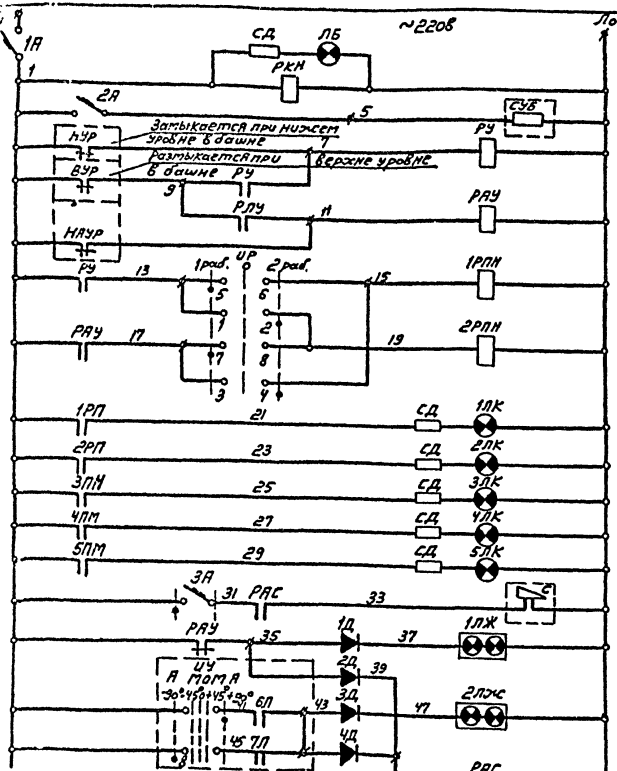 ~220в
Ло
1А
СД ЛБ
РКН
1
2А
5
СУБ
НУР
Замыкается при нижем
уровне в башне
7
РУ
ВУР
Размыкается при верхне уровне
в башне
9
РУ
РЛУ
11
РАУ
НАУР
РУ
13
1раб. УР 2раб.
15
1РПН
5 6
1 2
РАУ
17
7 8
19
2РПН
3 4
1РП
21
СД
1ЛК
2РП
23
СД
2ЛК
3ПМ
25
СД
3ЛК
4ПМ
27
СД
4ЛК
5ПМ
29
СД
5ЛК
3А
31
РАС
33
С
РАУ
35
1Д
37
1ЛЖ
УУ
2Д
39
А МОМА
-90° 45 0 +45° +90°
41
6Л
43
3Д
47
2ЛЖ
45
7Л
4Д
РАС